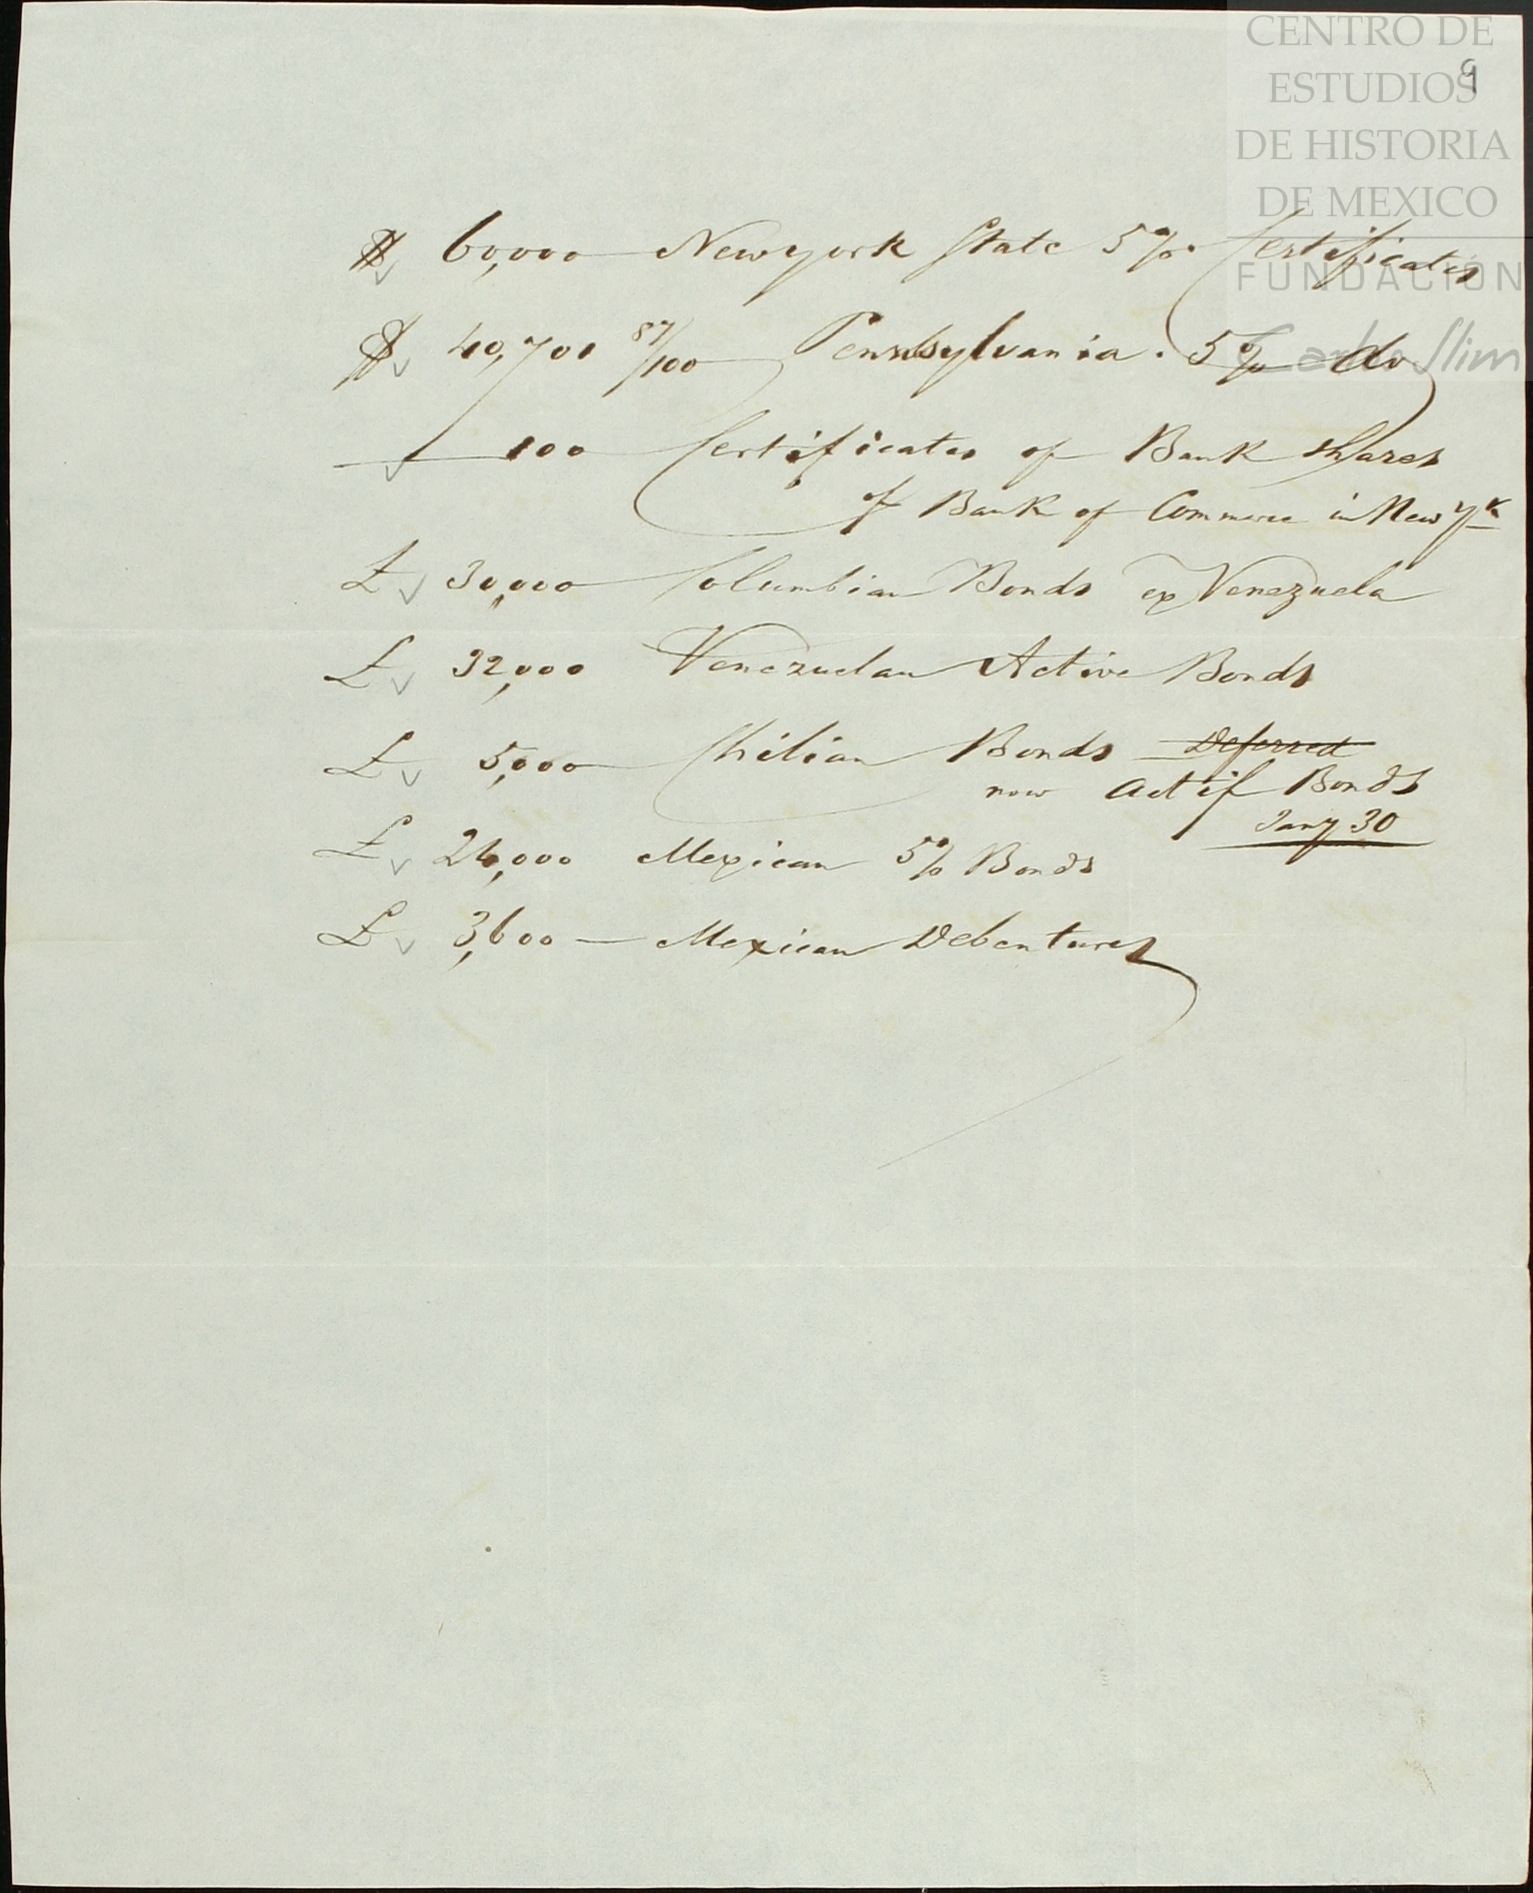 CENTRO DE
ESTUDIOS
DE HISTORIA
DE MEXICO
FUNDACIÓN
Carlos Slim
9
$ 60,000 Newyork State 5% Certificates
$ 40,701 87/100 Pennsylvania. 5% do
100 Certificates of Bank shares
of Bank of Commerce in New Yk
£ 30,000 Columbian Bonds ex Venezuela
£ 32,000 Venezuelan Active Bonds
£ 5,000 Chilian Bonds Deferred
now Actif Bonds
Jany 30
£ 24,000 Mexican 5% Bonds
£ 3,600 — Mexican Debentures